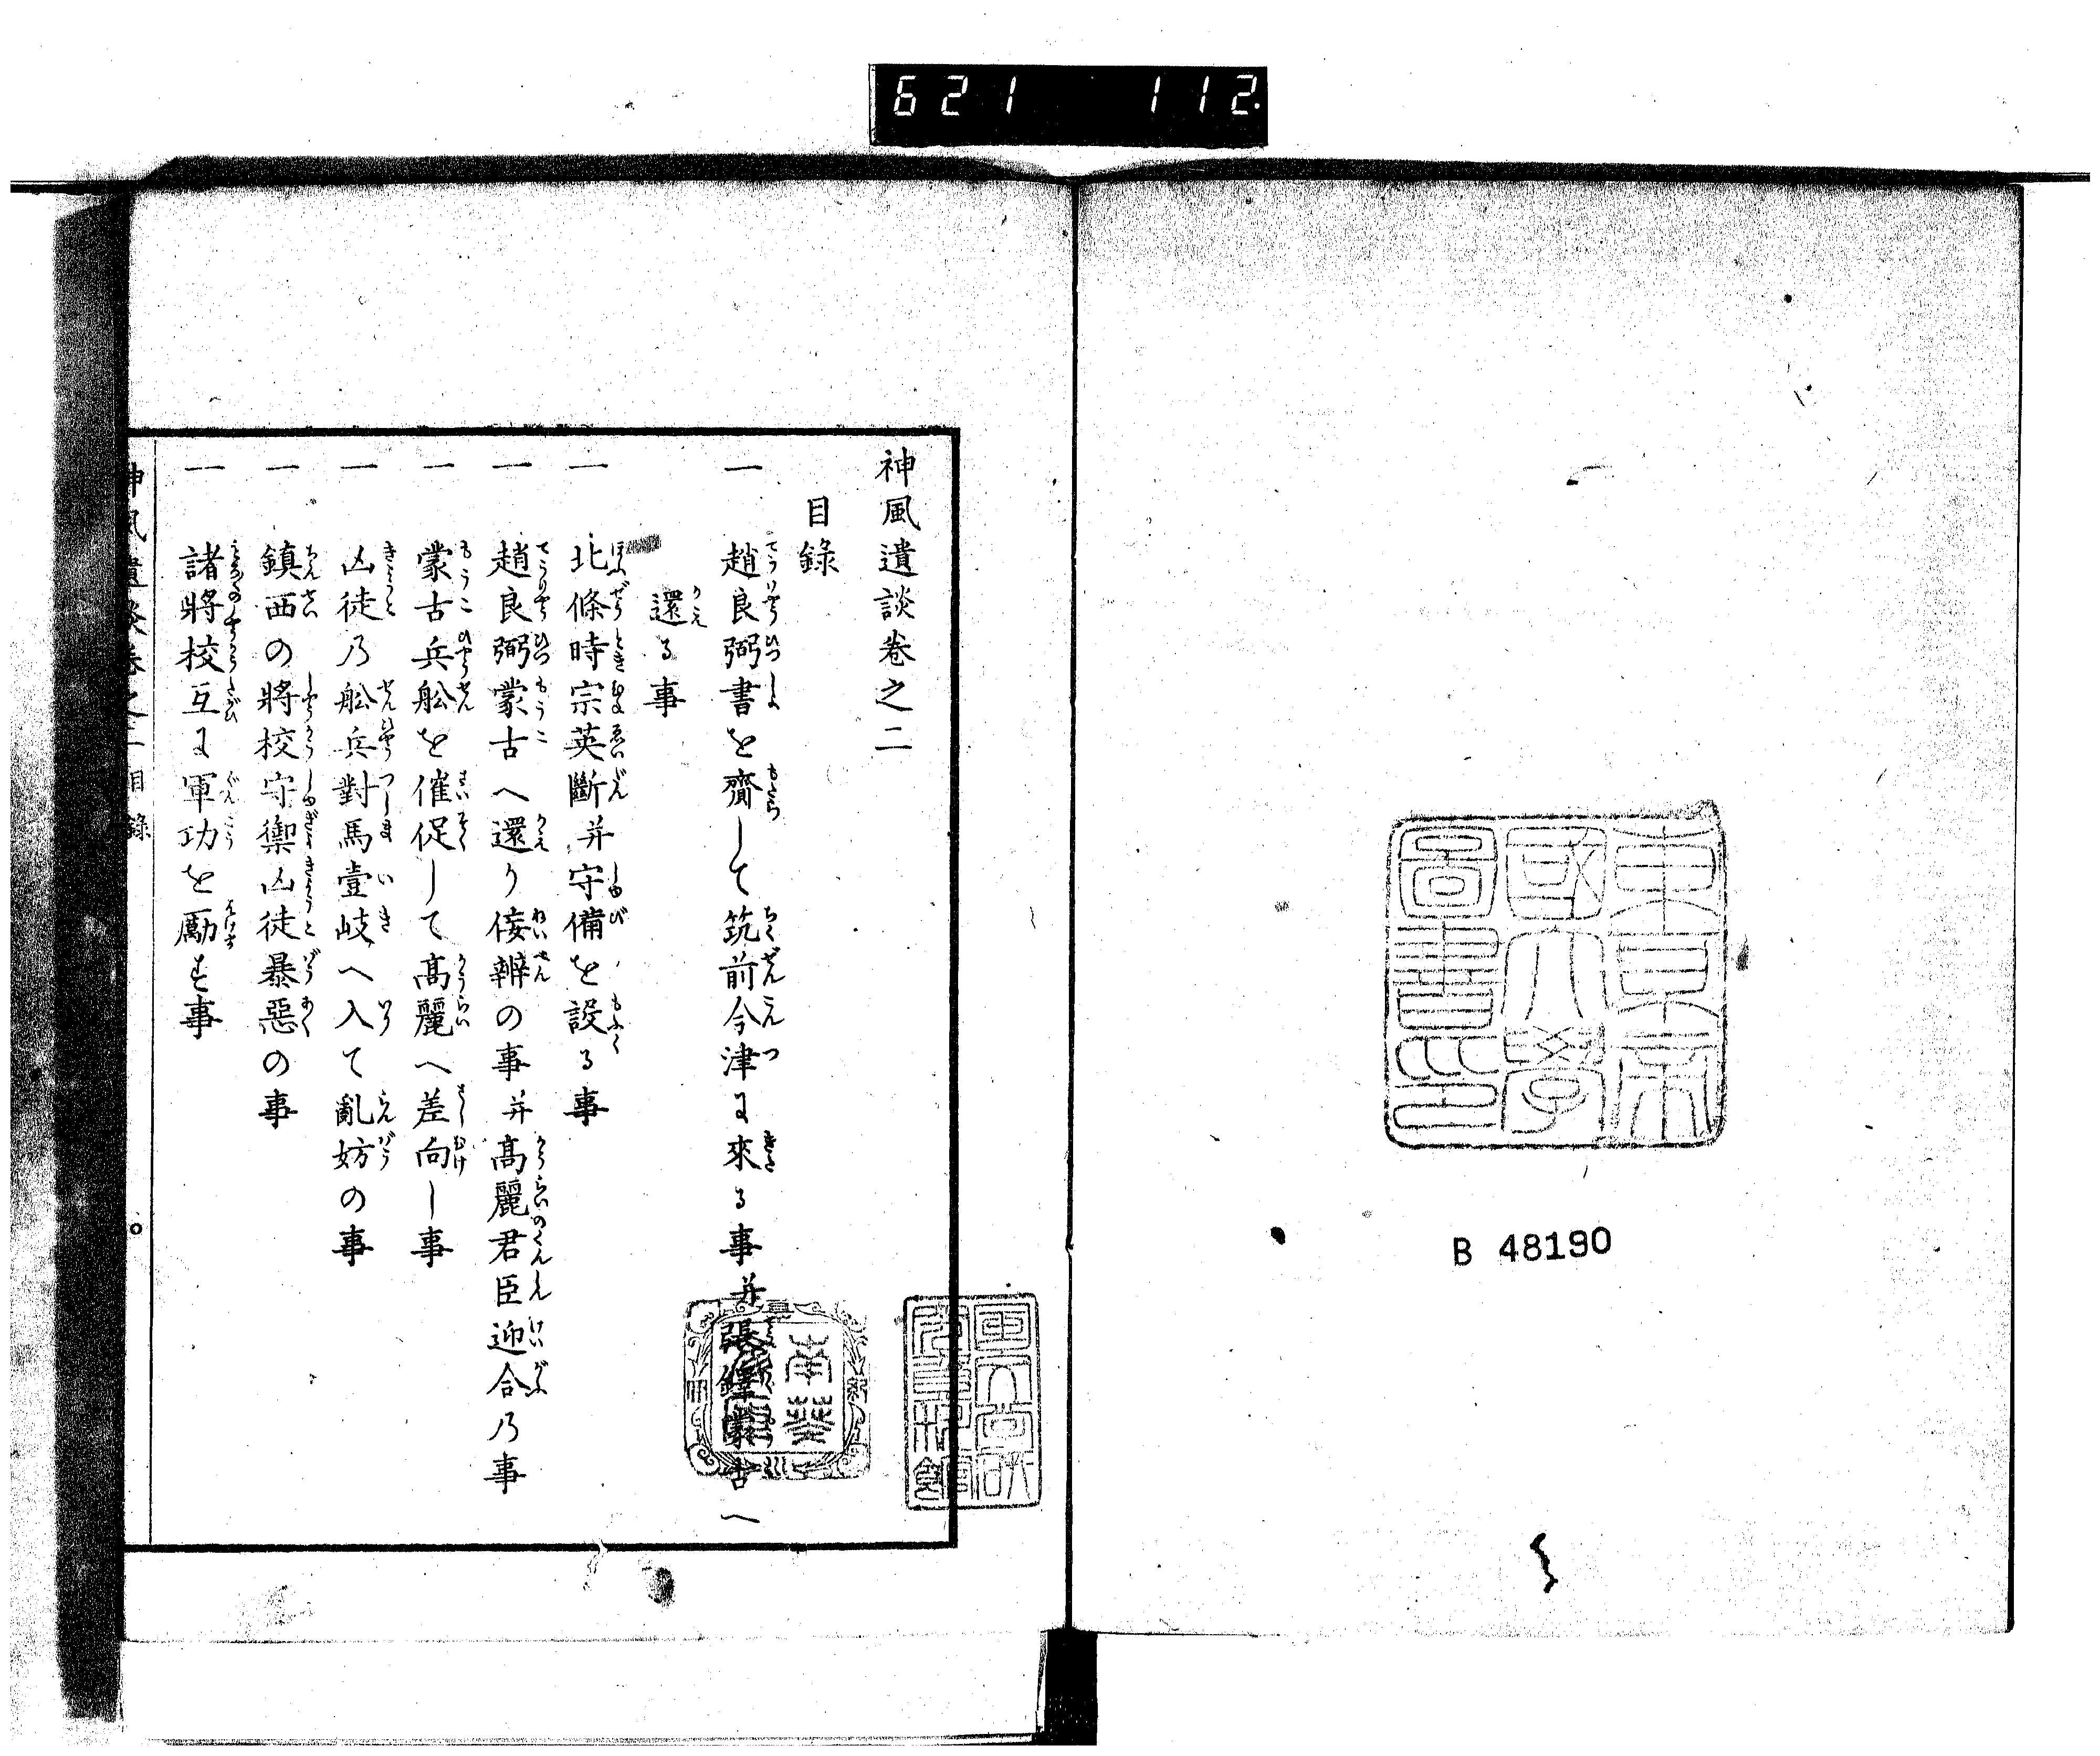 621 112.
東京帝
國大學
圖書印
B 48190
神風遺談卷之二
目錄
一 趙良弼書を齎して筑前今津に來る事并張鐸蒙古へ
還る事
一 北條時宗英斷并守備を設る事
一 趙良弼蒙古へ還り侫辨の事并高麗君臣迎合乃事
一 蒙古兵舩を催促して高麗へ差向し事
一 凶徒乃舩兵對馬壹岐へ入て亂妨の事
一 鎮西の將校守禦凶徒暴惡の事
一 諸將校互に軍功を励す事
神風遺談卷之二 目錄
南葵